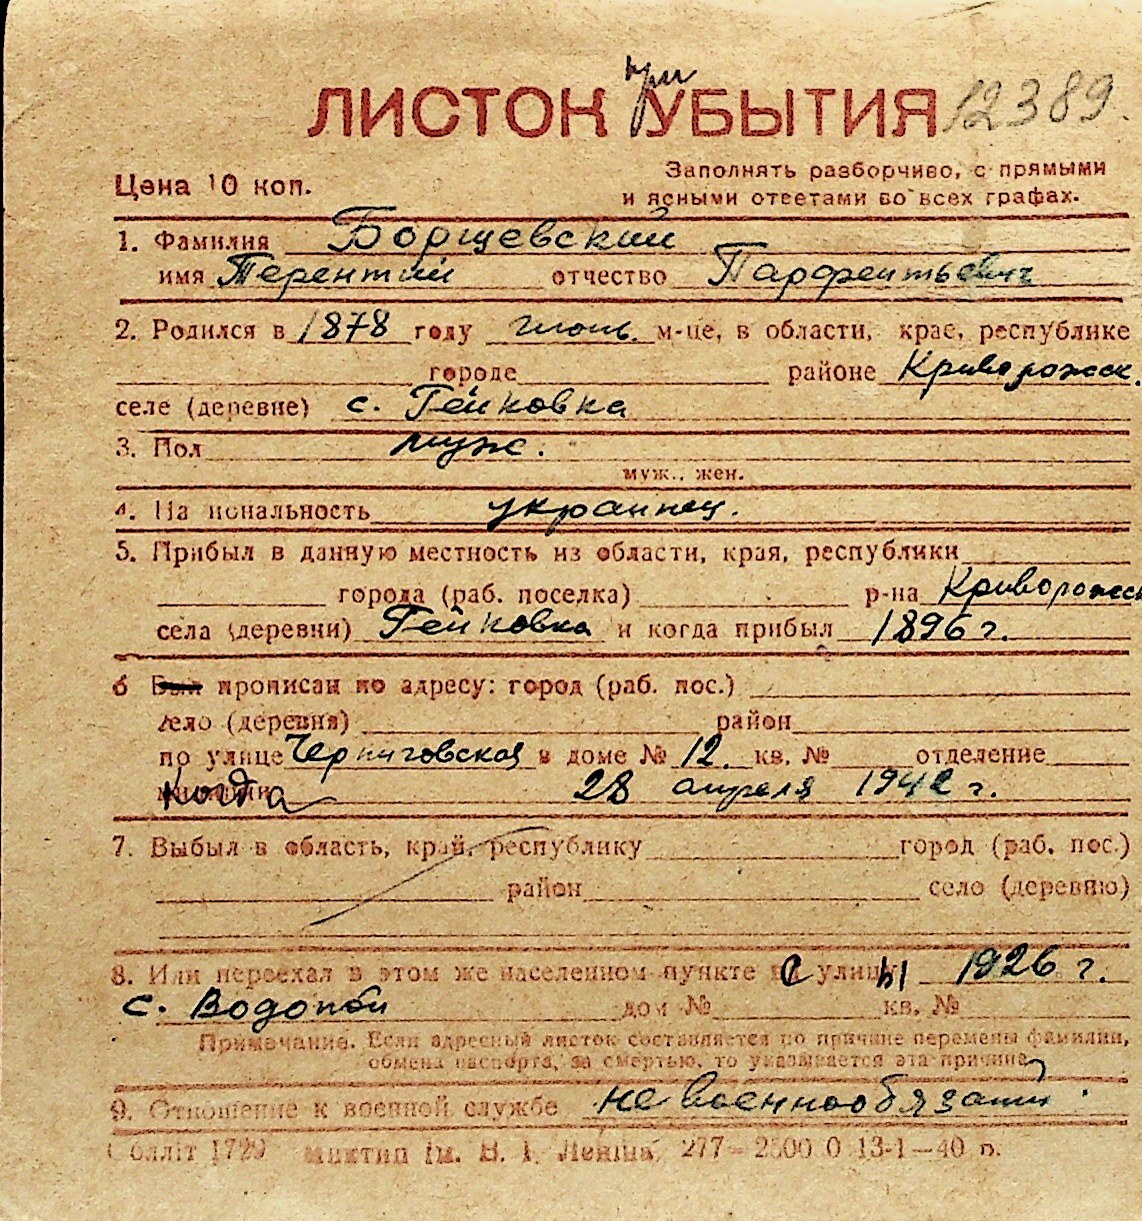 при
ЛИСТОК УБЫТИЯ 12389.
Цена 10 коп.
Заполнять разборчиво, с прямыми
и ясными ответами во всех графах.
1. Фамилия Борщевский
имя Терентий отчество Парфентьевич
2. Родился в 1878 году июнь. м-це, в области, крае, республике
городе районе Криворожск.
селе (деревне) с. Гейковка
3. Пол муж.
муж., жен.
4. Национальность украинец.
5. Прибыл в данную местность из области, края, республики
города (раб. поселка) р-на Криворожск
села (деревни) Гейковка и когда прибыл 1896 г.
6 Был прописан по адресу: город (раб. пос.)
село (деревня) район
по улице Черниговская в доме № 12. кв. № отделение
милиции Когда 28 апреля 1942 г.
7. Выбыл в область, край, республику город (раб. пос.)
район село (деревню)
8. Или переехал в этом же населенном пункте с улицы 1926 г.
с. Водопой дом № кв. №
Примечание. Если адресный листок составляется по причине перемены фамилии,
обмена паспорта, за смертью, то указывается эта причина
9. Отношение к военной службе не военнообязанный.
Облліт 1729 миктип ім. В. І. Леніна 277—2500 0 13-1—40 п.